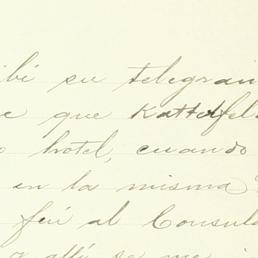 ibé su telegram
e que Kattelfel
o hotel, cuando
en la misma
fuí al Consula
allí se me